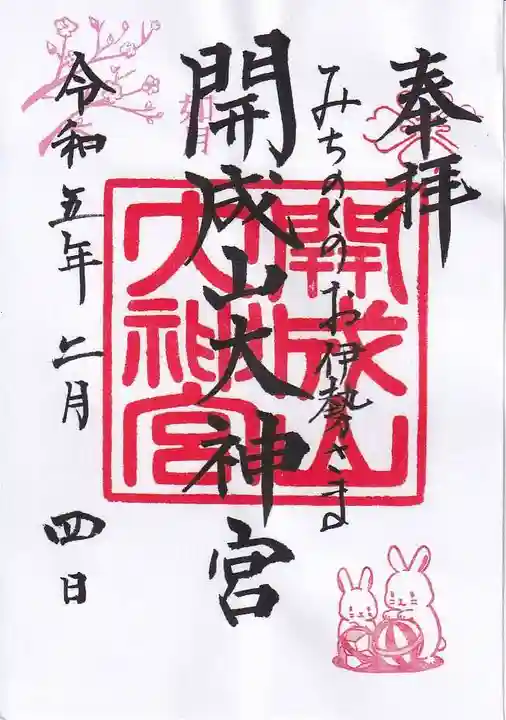 奉拝
みちのくのお伊勢さま
開成山大神宮
如月
開成山大神宮
令和五年二月四日